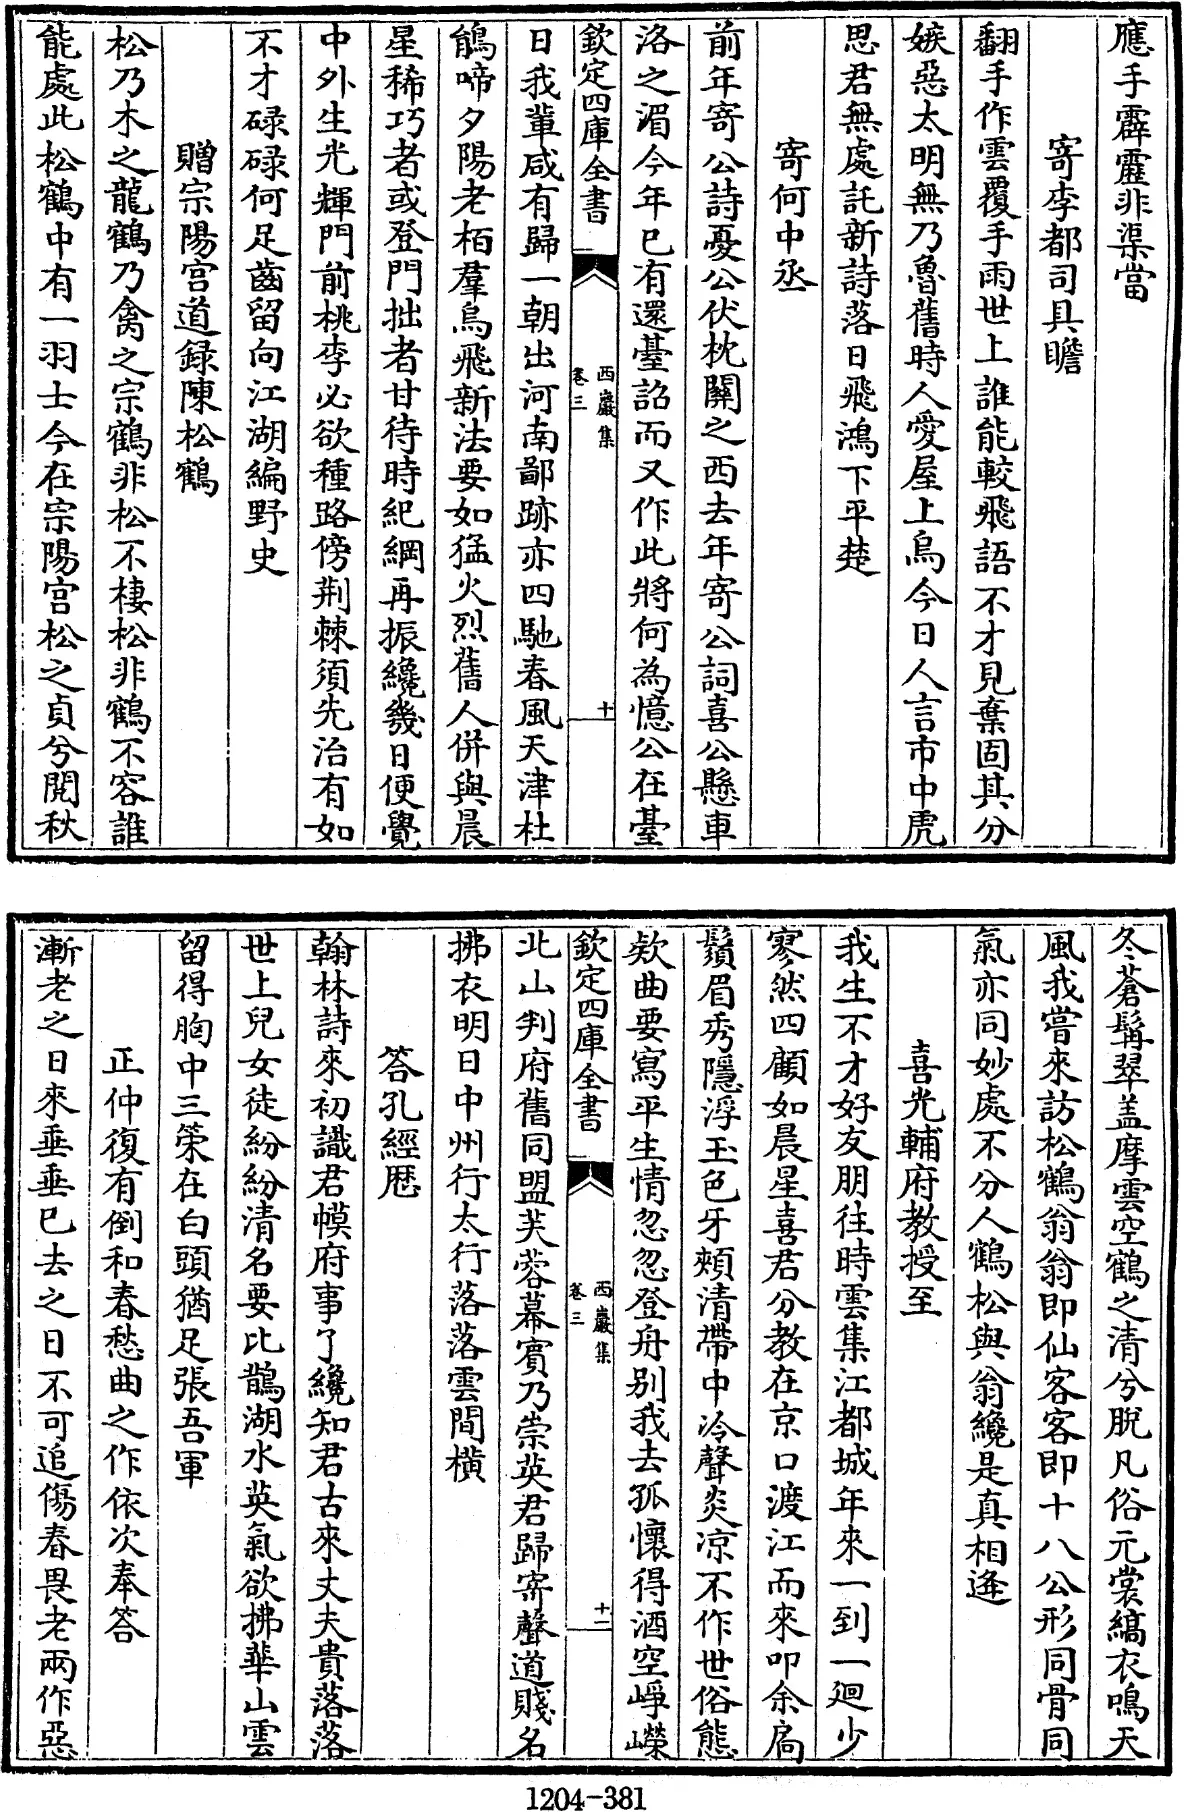 應手霹靂非渠當
寄李都司具瞻
翻手作雲覆手雨世上誰能較飛語不才見棄固其分
嫉惡太明無乃魯舊時人愛屋上烏今日人言市中虎
思君無處託新詩落日飛鴻下平楚
寄何中丞
前年寄公詩憂公伏枕關之西去年寄公詞喜公懸車
洛之湄今年已有還臺詔而又作此將何為憶公在臺
欽定四庫全書
西巖集
卷三
十
日我輩咸有歸一朝出河南鄙跡亦四馳春風天津杜
鵑啼夕陽老栢羣烏飛新法要如猛火烈舊人併與晨
星稀巧者或登門拙者甘待時紀綱再振纔幾日便覺
中外生光輝門前桃李必欲種路傍荆棘須先治有如
不才碌碌何足齒留向江湖編野史
贈宗陽宫道録陳松鶴
松乃木之龍鶴乃禽之宗鶴非松不棲松非鶴不容誰
能處此松鶴中有一羽士今在宗陽宫松之貞兮閱秋
冬蒼髯翠盖摩雲空鶴之清兮脫凡俗元裳縞衣鳴天
風我嘗來訪松鶴翁翁即仙客客即十八公形同骨同
氣亦同妙處不分人鶴松與翁纔是真相逢
喜光輔府教授至
我生不才好友朋往時雲集江都城年來一到一廻少
寥然四顧如晨星喜君分教在京口渡江而來叩余扃
鬚眉秀隱浮玉色牙頰清帶中泠聲炎凉不作世俗態
欵曲要寫平生情忽忽登舟别我去孤懷得酒空崢嶸
欽定四庫全書
西巖集
卷三
十一
北山判府舊同盟芙蓉幕賓乃崇英君歸寄聲道賤名
拂衣明日中州行太行落落雲間橫
答孔經歷
翰林詩來初識君幙府事了纔知君古來丈夫貴落落
世上兒女徒紛紛清名要比鵲湖水英氣欲拂華山雲
留得胸中三策在白頭猶足張吾軍
正仲復有倒和春愁曲之作依次奉答
漸老之日來垂垂已去之日不可追傷春畏老兩作惡
1204-381